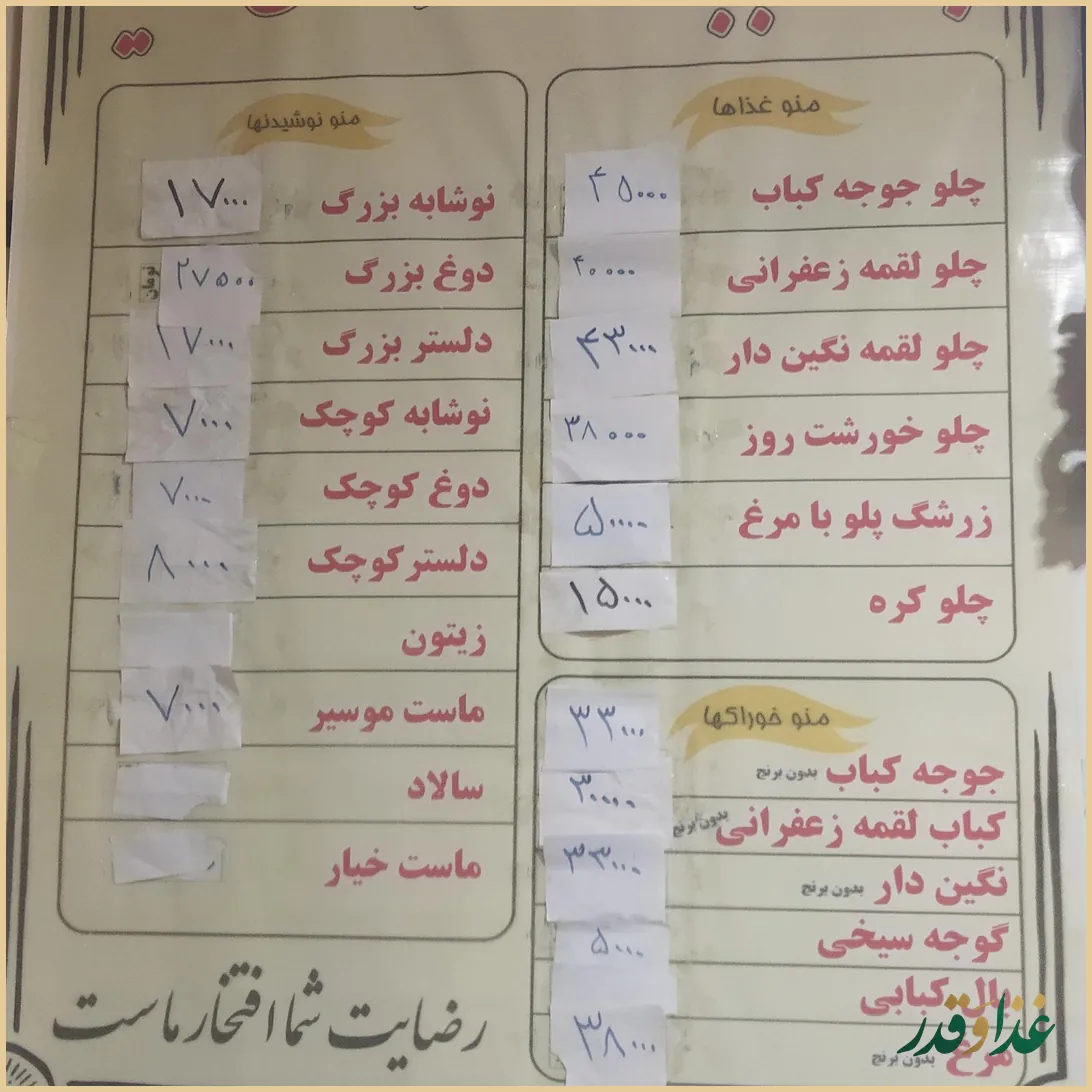 منو غذاها
چلو جوجه کباب ۴۵۰۰۰
چلو لقمه زعفرانی ۴۰۰۰۰
چلو لقمه نگین دار ۴۳۰۰۰
چلو خورشت روز ۳۸۰۰۰
زرشگ پلو با مرغ ۵۰۰۰۰
چلو کره ۱۵۰۰۰
منو خوراکها
جوجه کباب بدون برنج ۳۳۰۰۰
کباب لقمه زعفرانی بدون برنج ۳۰۰۰۰
نگین دار بدون برنج ۳۳۰۰۰
گوجه سیخی ۵۰۰۰
بال کبابی
مرغ بدون برنج ۳۸۰۰۰
منو نوشیدنها
نوشابه بزرگ ۱۷۰۰۰
دوغ بزرگ ۲۷۵۰۰ تومان
دلستر بزرگ ۱۷۰۰۰
نوشابه کوچک ۷۰۰۰
دوغ کوچک ۷۰۰۰
دلستر کوچک ۸۰۰۰
زیتون
ماست موسیر ۷۰۰۰
سالاد
ماست خیار
رضایت شما افتخار ماست
غذا و قدر